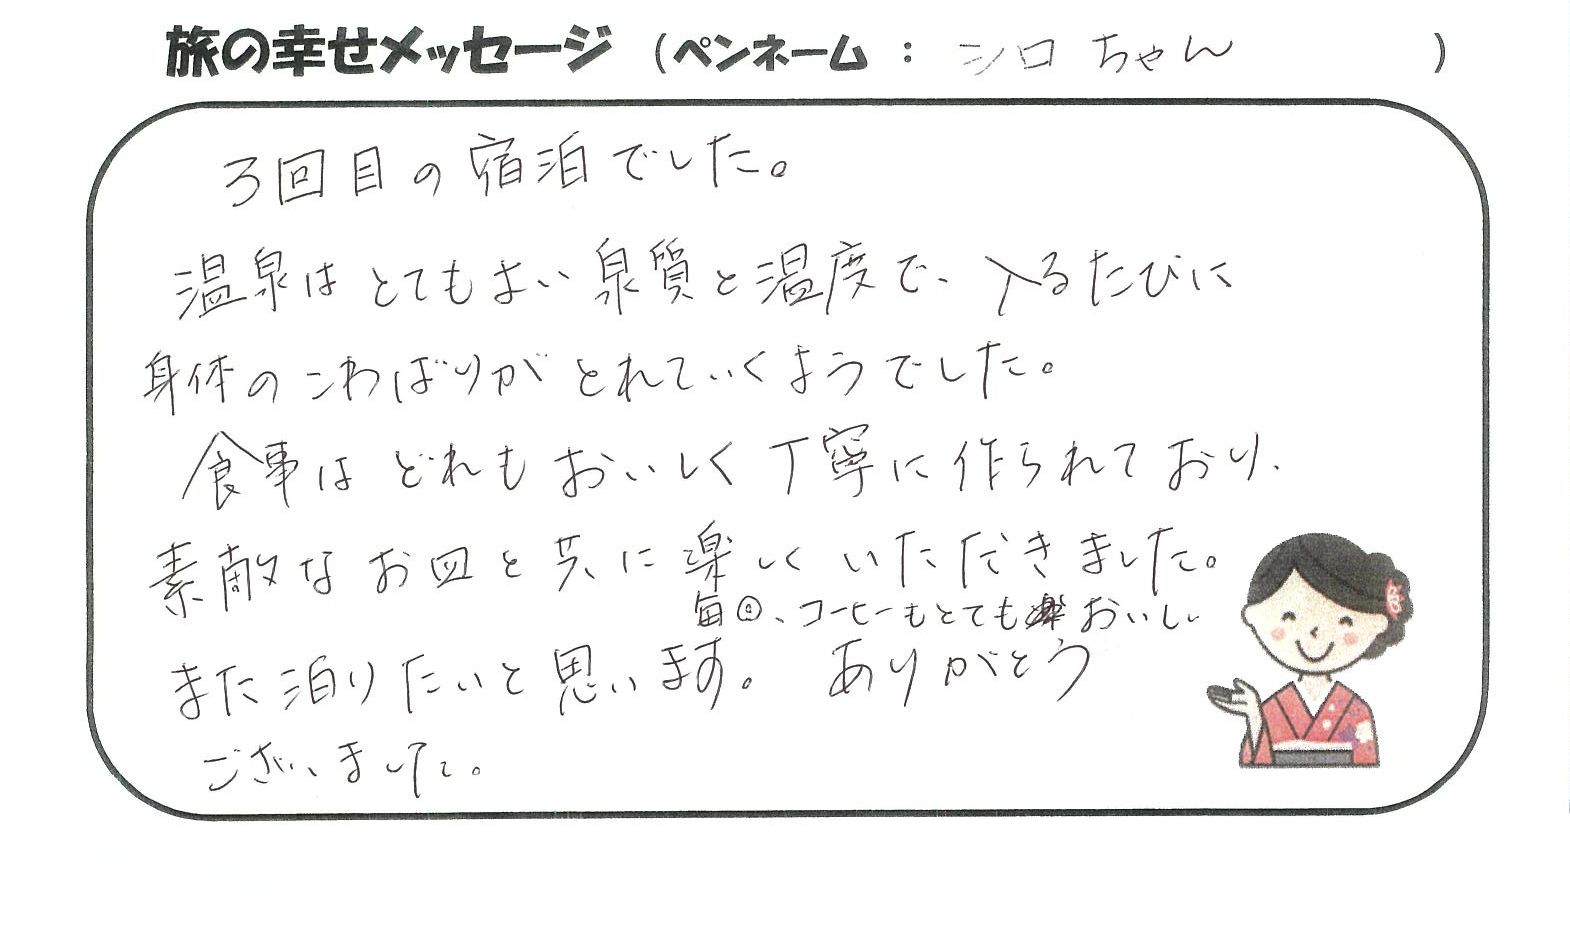 旅の幸せメッセージ (ペンネーム : シロちゃん )
3回目の宿泊でした。
温泉はとてもよい泉質と温度で、入るたびに
身体のこわばりがとれていくようでした。
食事はどれもおいしく丁寧に作られており、
素敵なお皿と共に楽しくいただきました。
毎回、コーヒーもとてもおいしい
また泊りたいと思います。 ありがとう
ございました。